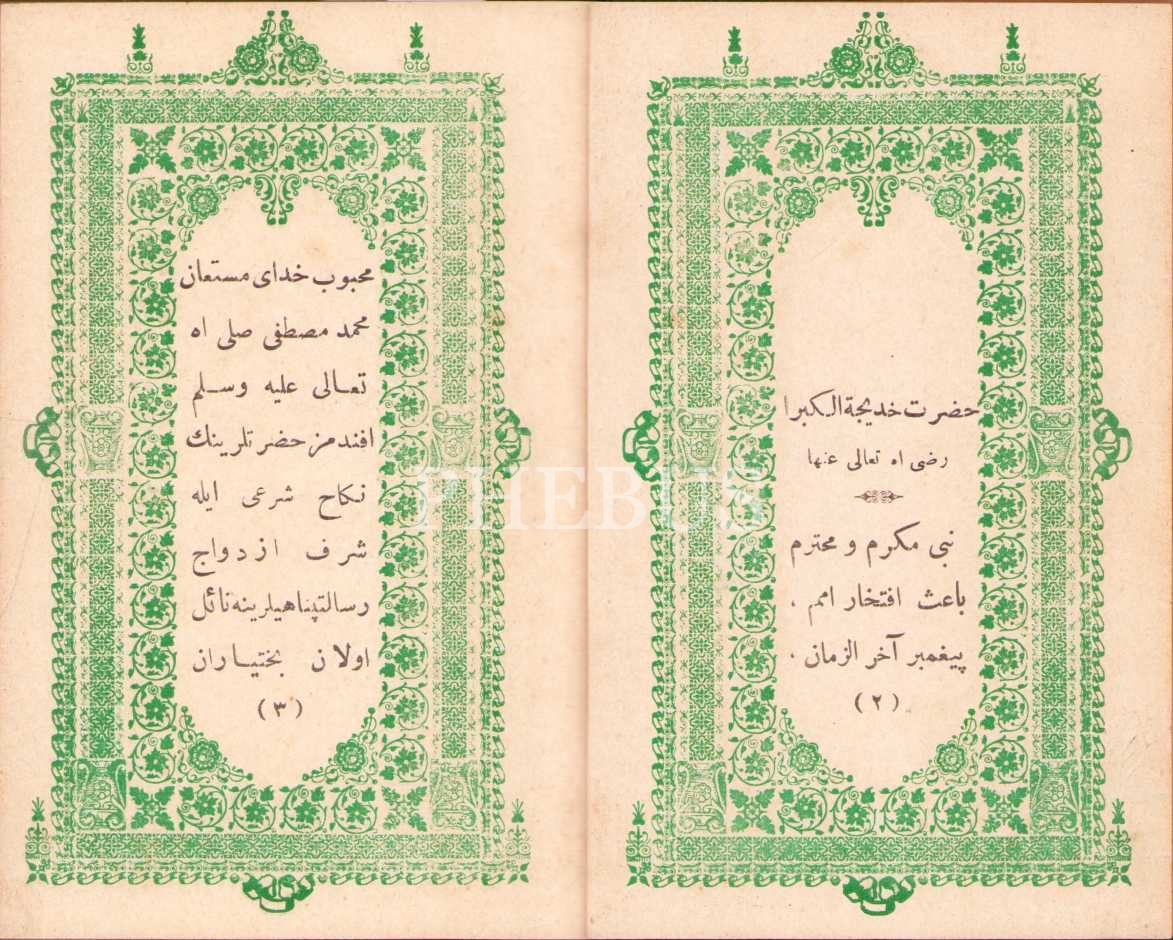 حضرت خديجة الكبرا
رضى اه تعالى عنها
نبى مكرم و محترم
باعث افتخار امم .
پيغمبر آخر الزمان .
(٢)
محبوب خداى مستعان
محمد مصطفى صلى اه
تعالى عليه وسلم
افندمز حضرتلرينك
نكاح شرعى ايله
شرف ازدواج
رسالتپناهيلرينه نائل
اولان بختياران
(٣)
PHEBUS